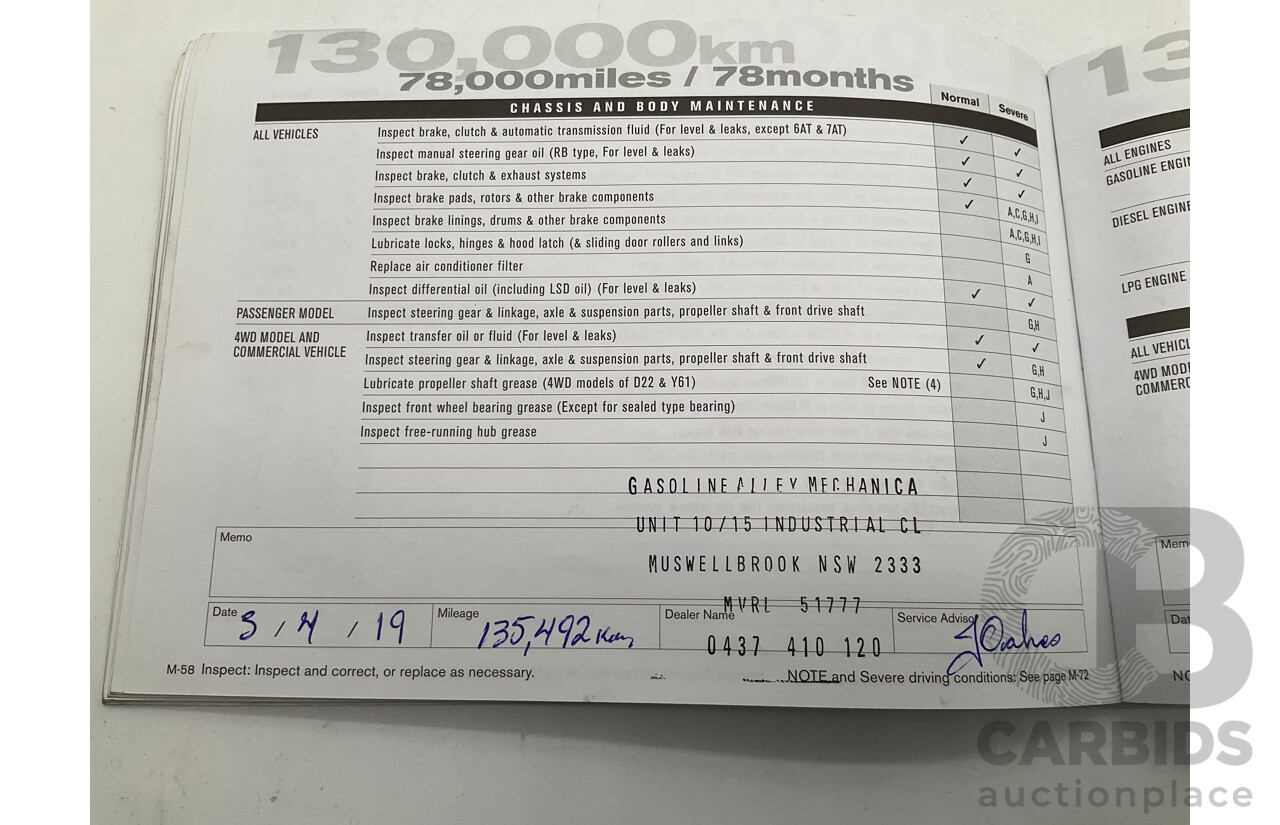 130,000km
78,000miles / 78months
CHASSIS AND BODY MAINTENANCE Normal Severe
ALL VEHICLES Inspect brake, clutch & automatic transmission fluid (For level & leaks, except 6AT & 7AT) ✓ ✓
Inspect manual steering gear oil (RB type, For level & leaks) ✓ ✓
Inspect brake, clutch & exhaust systems ✓ ✓
Inspect brake pads, rotors & other brake components ✓ A,C,G,H,I
Inspect brake linings, drums & other brake components A,C,G,H,I
Lubricate locks, hinges & hood latch (& sliding door rollers and links) G
Replace air conditioner filter A
Inspect differential oil (including LSD oil) (For level & leaks) ✓ ✓
PASSENGER MODEL Inspect steering gear & linkage, axle & suspension parts, propeller shaft & front drive shaft G,H
4WD MODEL AND Inspect transfer oil or fluid (For level & leaks) ✓ ✓
COMMERCIAL VEHICLE Inspect steering gear & linkage, axle & suspension parts, propeller shaft & front drive shaft ✓ G,H
Lubricate propeller shaft grease (4WD models of D22 & Y61) See NOTE (4) G,H,J
Inspect front wheel bearing grease (Except for sealed type bearing) J
Inspect free-running hub grease J
GASOLINE ALLEY MECHANICA
UNIT 10/15 INDUSTRIAL CL
Memo
MUSWELLBROOK NSW 2333
MVRL 51777
Date 3 / 4 / 19 Mileage 135,492 Km Dealer Name Service Adviso JOakes
0437 410 120
M-58 Inspect: Inspect and correct, or replace as necessary. NOTE and Severe driving conditions: See page M-72
13
ALL ENGINES
GASOLINE ENGIN
DIESEL ENGINE
LPG ENGINE
ALL VEHICL
4WD MODE
COMMERC
Mem
Dat
NO
CB
CARBIDS
auctionplace